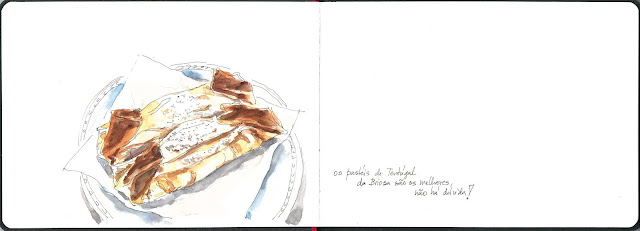 os pastéis de Tentúgal
da Briosa são os melhores,
não há dúvida!